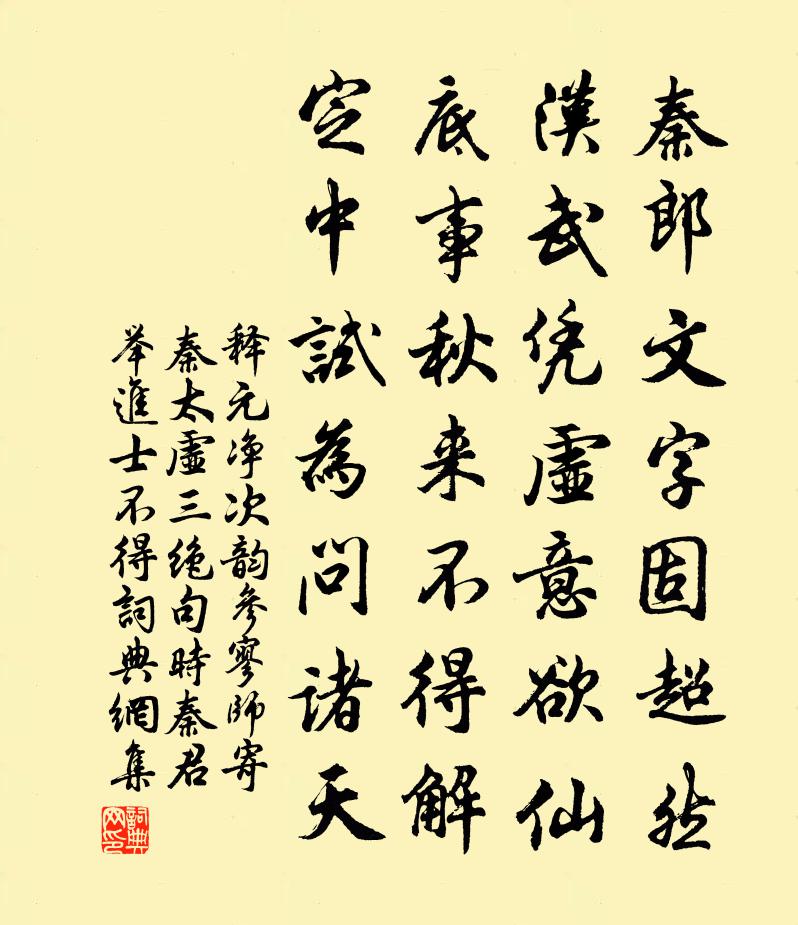 秦郎文字固超然
漢武凭虛意欲仙
底事秋来不得解
定中試為問諸天
释元净次韵參寥师寄
秦太虛三绝句時秦君
举進士不得詞典網集
詞典网印